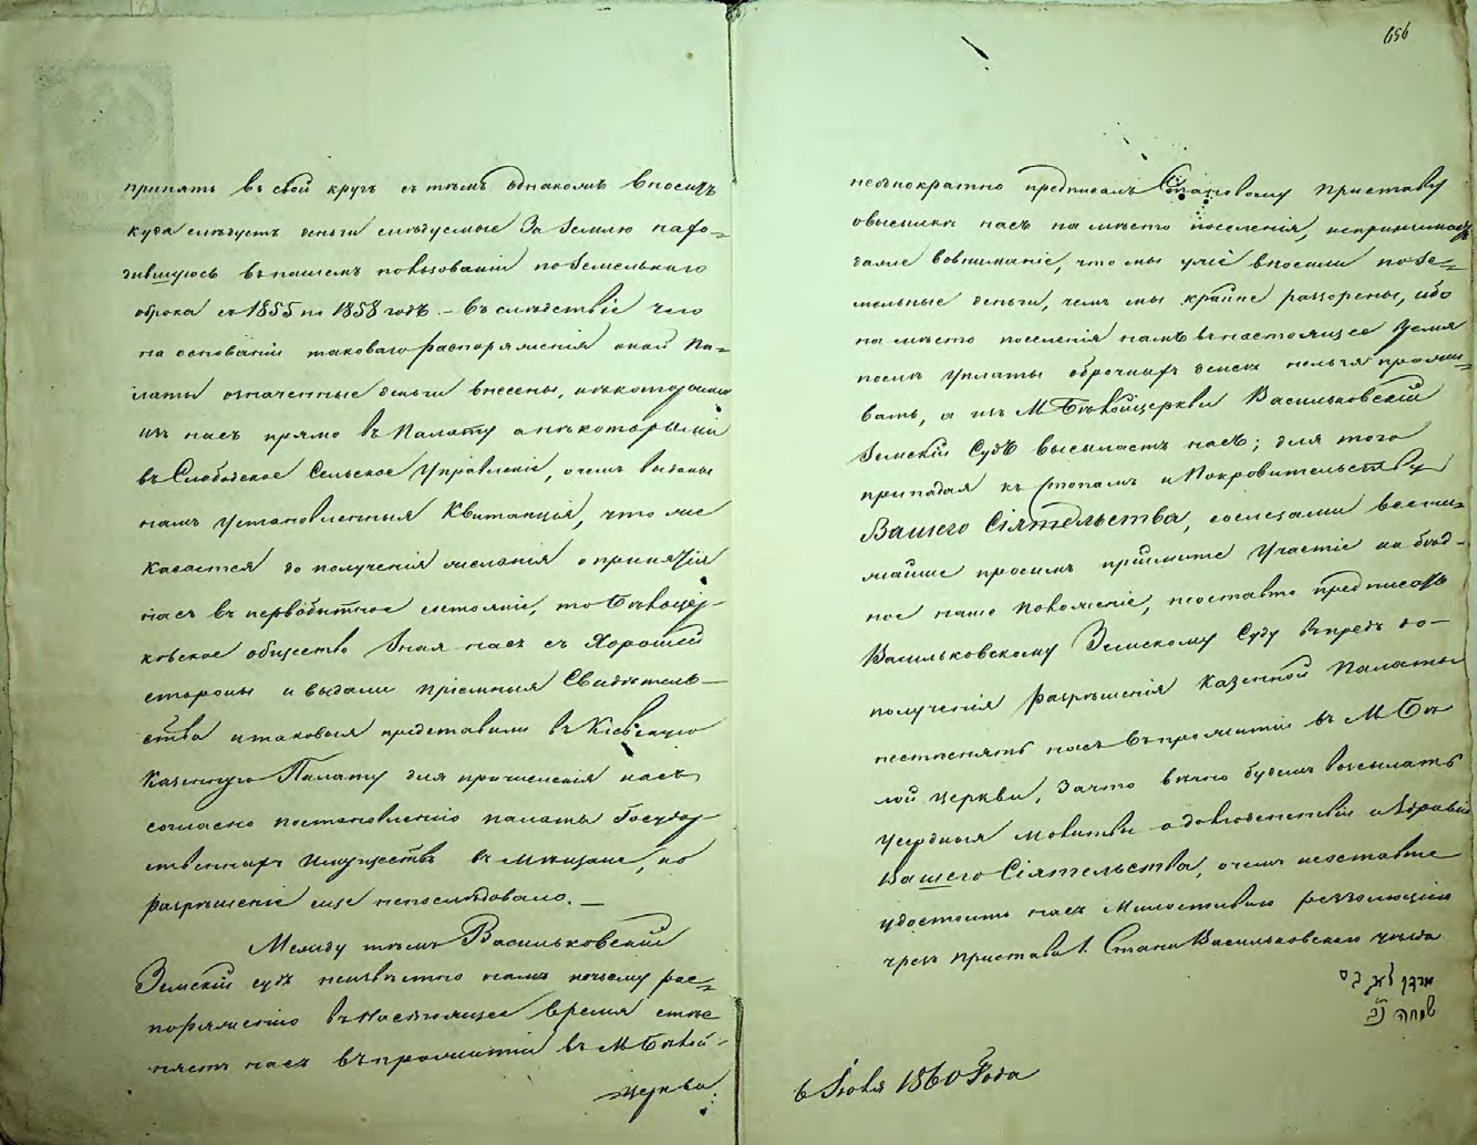 принять въ свой кругъ съ тѣмъ однакомъ вносить
куда слѣдуетъ деньги слѣдуемые За Землю нахо=
дившуюсь въ нашемъ пользованіи поземельнаго
оброка съ 1855 по 1858 годъ. – въ слѣдствіе чего
на основаніи таковаго распоряженія оной Па=
латы означенные деньги внесены, нѣкоторыми
изъ насъ прямо въ Палату а нѣкоторыми
въ Слободское Сельское Управленіе, о чемъ выданы
намъ установленныя Квитанціи, что же
касается до полученія желанія о принятіи
насъ въ первобытное состояніе, то Бѣлоцер-
ковское общество Зная насъ съ Хорошей
стороны и выдали пріемныя Свидѣтель-
ства и таковыя представили въ Кіевскую
Казенную Палату для причисленія насъ
согласно постановленію палаты Государ-
ственныхъ Имуществъ въ Мѣщане, но
разрѣшеніе еще непослѣдовало. —
Между тѣмъ Васильковскій
Земскій судъ неизвѣстно намъ почему рас=
поряженію въ Настоящее время стѣс
няетъ насъ въ прожитіи въ М Бѣлой-
церкви
656
неоднократно предписалъ Становому Приставу
о высылки насъ на мѣсто поселенія, непринимая
даже во вниманіе, что мы уже вносили позе=
мельные деньги, чемъ мы крайне разорены, ибо
на мѣсто поселенія намъ въ настоящее Время
послѣ Уплаты оброчныхъ денегъ нельзя прожи=
вать, а изъ М Бѣлойцеркви Васильковскій
Земскій Судъ высылаетъ насъ; для того
припадая къ стопамъ и Покровительству
Вашего Сіятельства, со слезами всени=
жайше просимъ пріймите Участіе на бѣд-
ное наше Положеніе, неоставте предписать
Васильковскому Земскому Суду впредъ до-
полученія разрѣшенія Казенной Палаты
нестѣснять насъ въ прожитіи въ М Бѣ
лой церкви, За что вѣчно будемъ возсылать
усердныя молитвы о долгоденствіи и Здравіи
Вашего Сіятельства, о чемъ неоставте
удостоить насъ Милостивою резолюціею
чрезъ Пристава 1. Стана Васильковскаго уѣзда
6 Іюля 1860 Года